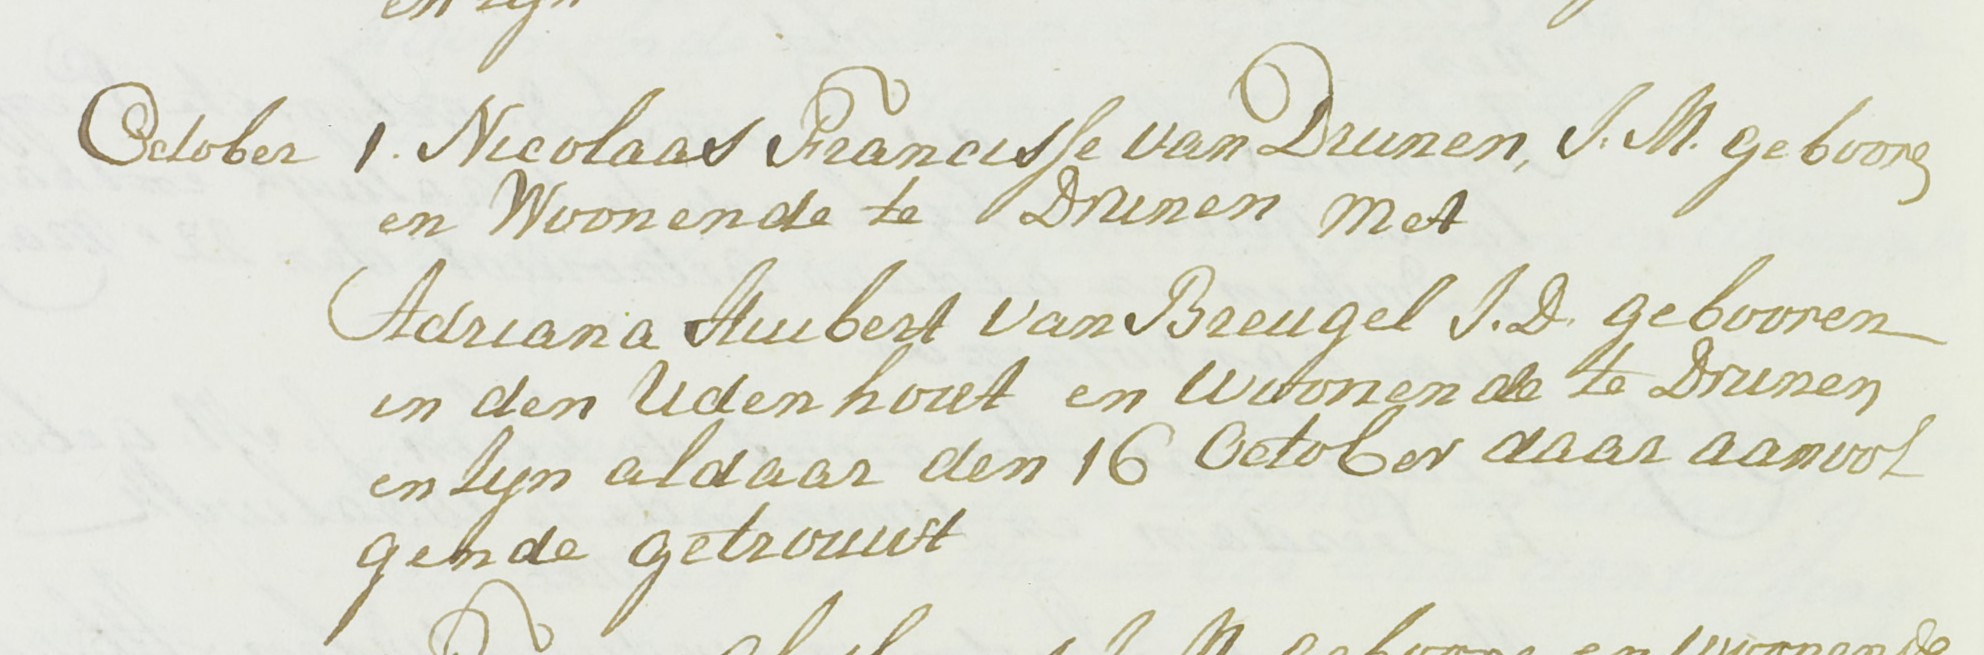 en zyn
October 1. Nicolaas Francisse van Drunen J. M. geboore
en Woonende te Drunen met
Adriana Huibert van Breugel J. D. gebooren
in den Udenhout en woonende te Drunen
en zyn aldaar den 16 October daar aanvol
gende getrouwt
J. M. geboore en woonende